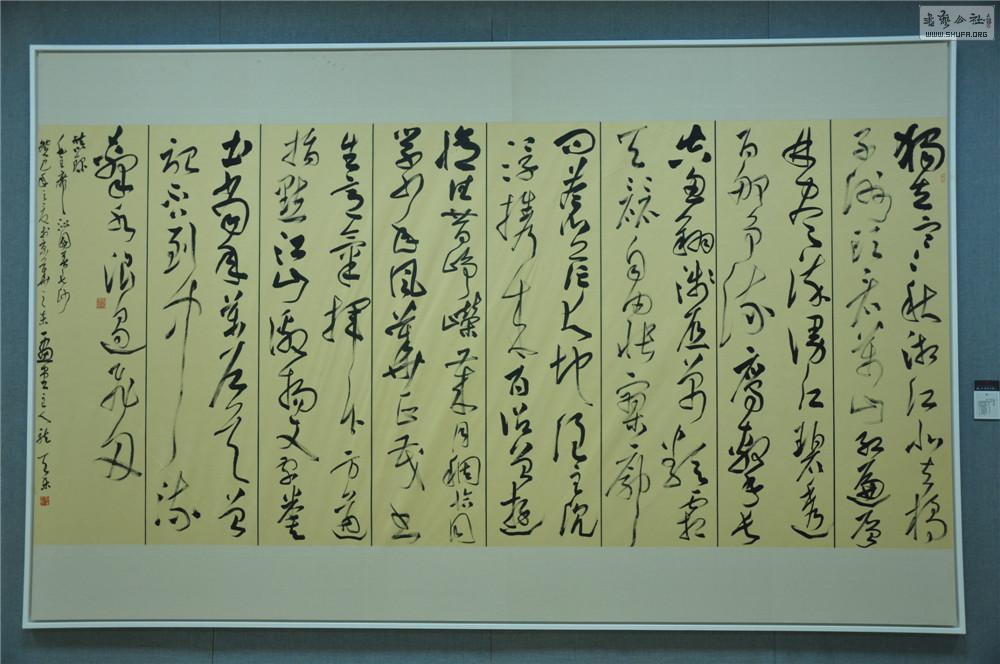 獨立寒秋湘江北去橘
子洲頭看萬山紅遍層
林盡染漫江碧透
百舸爭流鷹擊長
空魚翔淺底萬類霜
天競自由悵寥廓
問蒼茫大地誰主沉
浮携來百侣曾遊
憶往昔崢嶸歲月稠恰同
學少年風華正茂書
生意氣揮斥方遒
指點江山激揚文字糞
土當年萬户侯曾
記否到中流
擊水浪遏飛舟
毛主席沁園春長沙
癸巳年之夏於京華之東
书艺公社
WWW.SHUFA.ORG